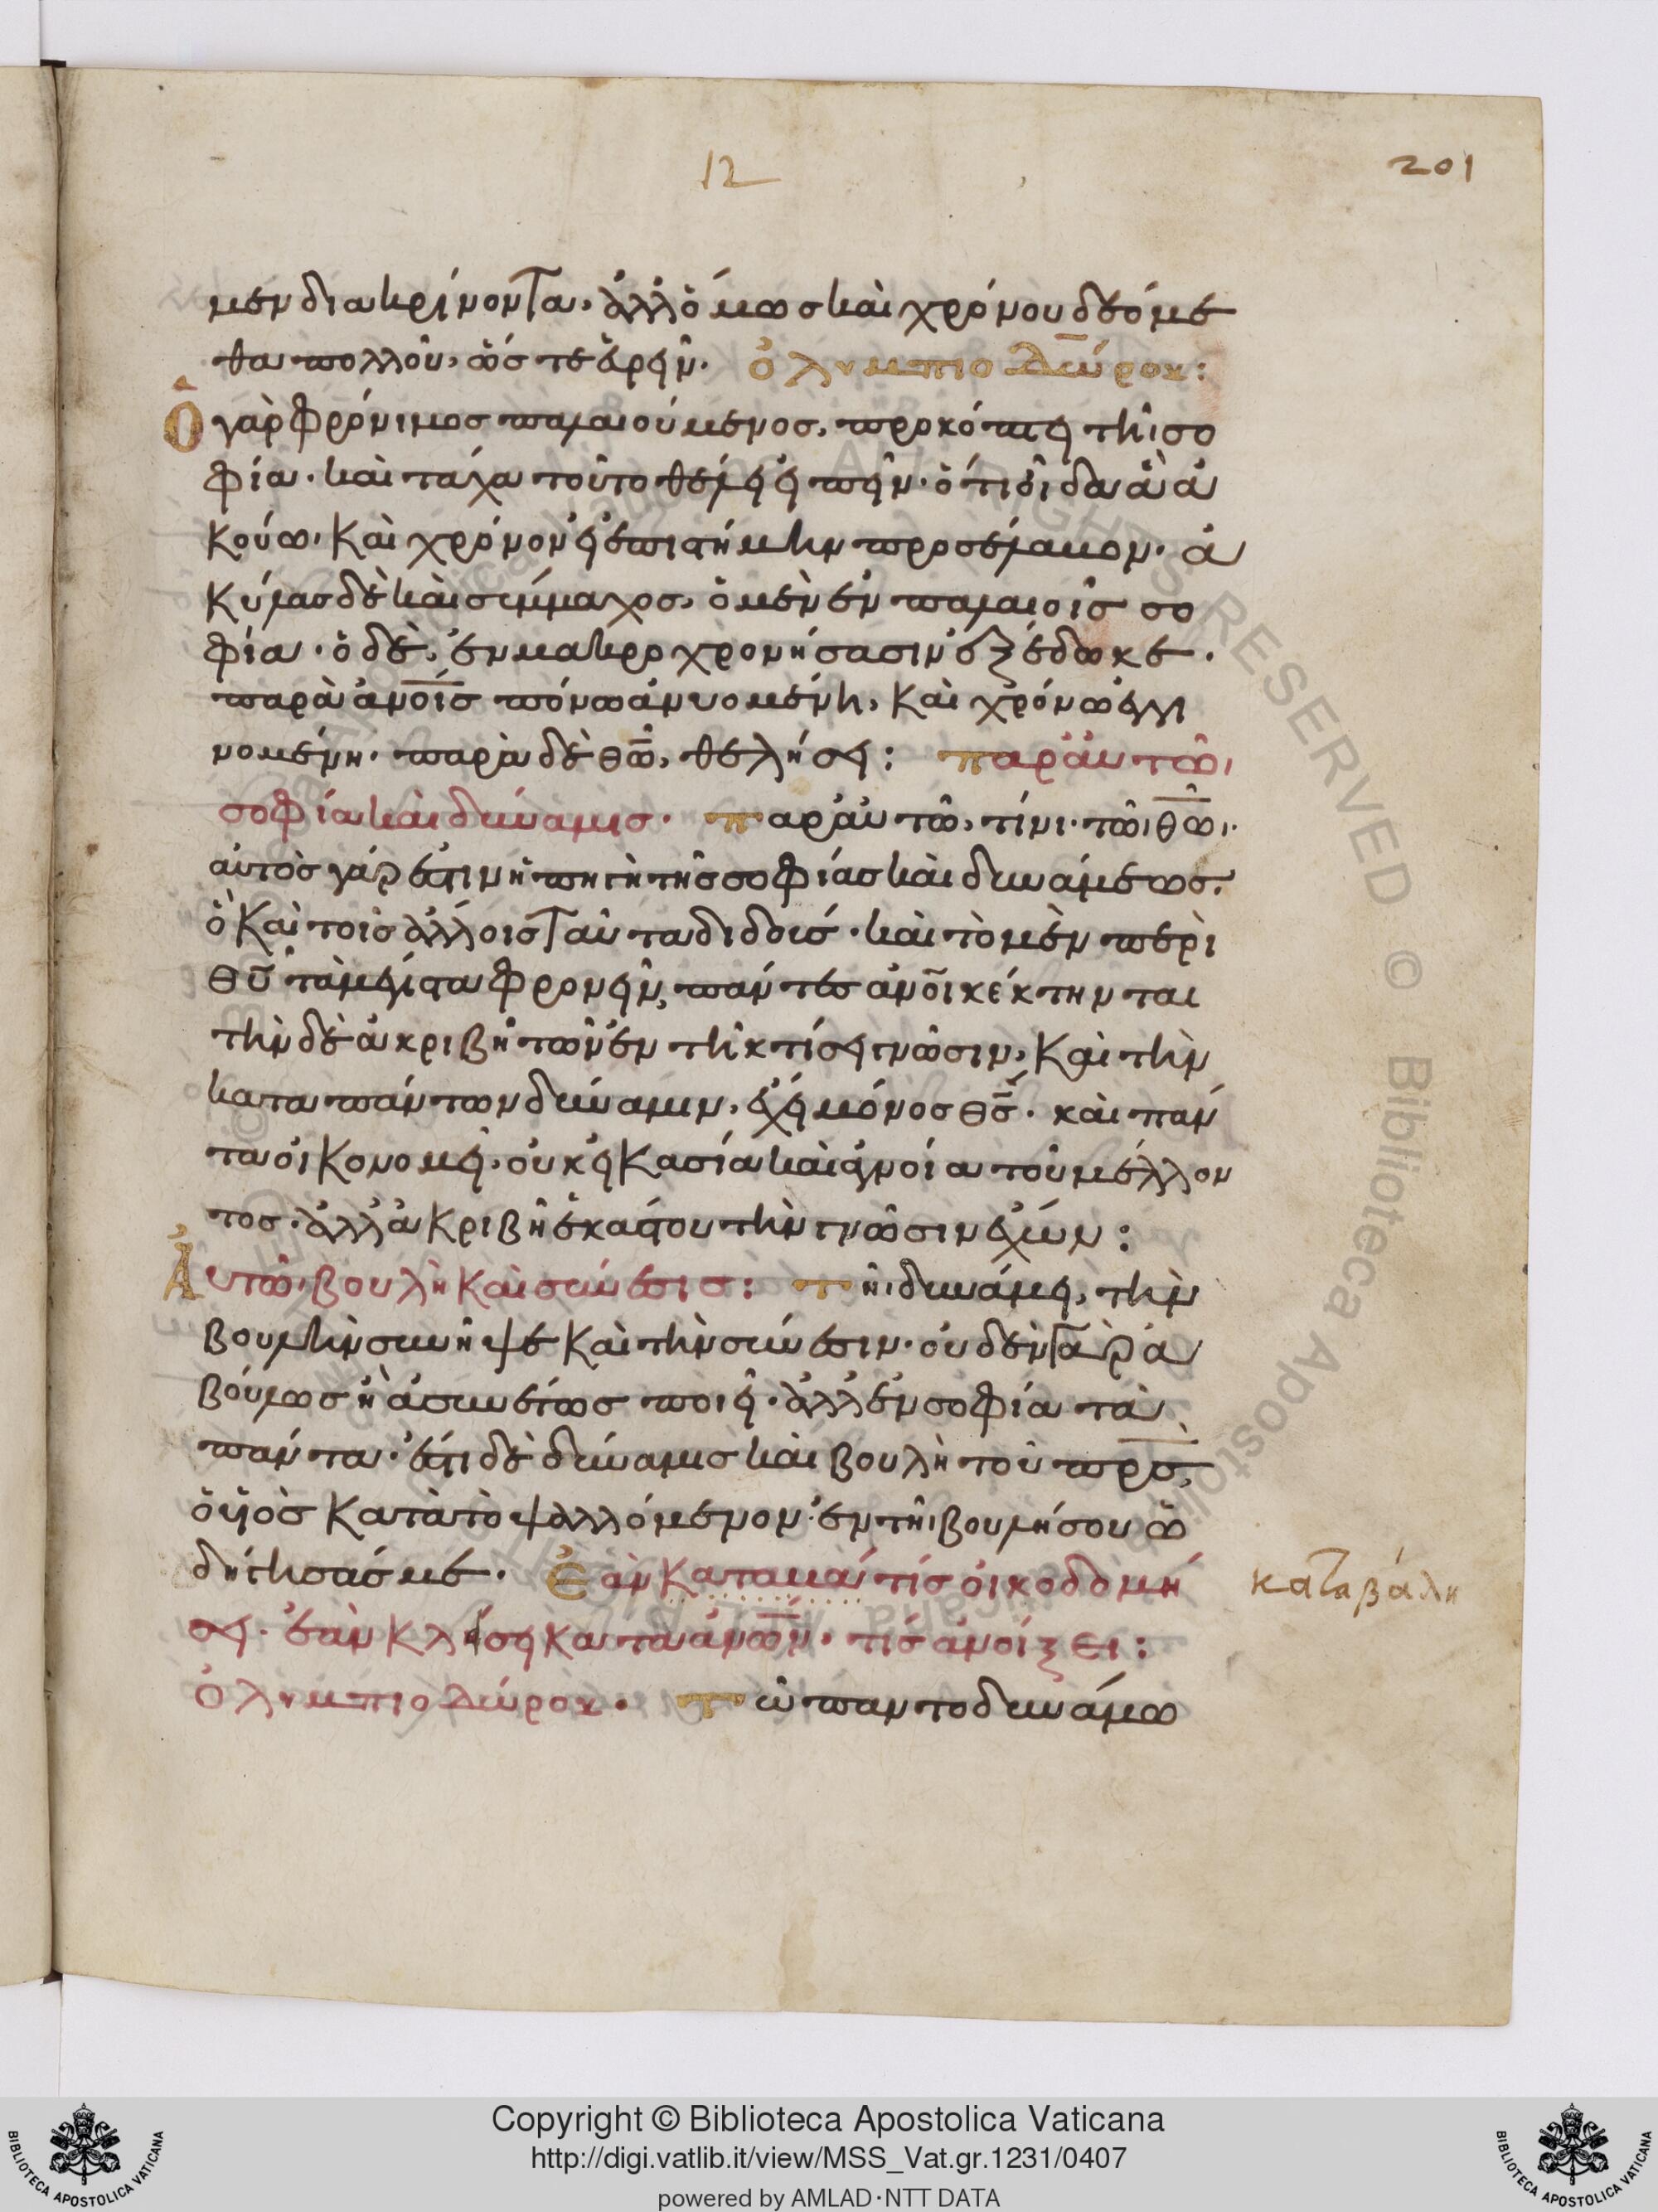 12
201
μὲν διακρίνοντα, ἀλλ' ὅμως καὶ χρόνου δεόμε
θα πολλοῦ, ὥστε εὑρεῖν. ὀλυμπιοδώρου:
Ὁ γὰρ φρόνιμος παλαιούμενος, προκόπτει τῆι σο
φία· καὶ τάχα τοῦτο θέλει εἰπεῖν· ὅτι οἶδα ἃ ἀ
κούω, καὶ χρόνον εἰς ἐπιστήμην προσέλαμον· ἀ
κύλας δὲ καὶ σύμμαχος, ὁ μὲν ἐν παλαιοῖς σο
φία· ὁ δὲ, ἐν μακροχρονήσασιν ἐξέδωκε.
παρὰ ἀνοῖς πόνω ἀνυομένη, καὶ χρόνω ἐγγι
νομένη· παρὰ δὲ θω, θελήσει: παρ' αὐτῶι
σοφία καὶ δύναμις. παρ' αὐτῶ, τίνι· τῶι θωι.
αὐτὸς γάρ ἐστιν ἡ πηγὴ τῆς σοφίας καὶ δυνάμεως.
ὁ καὶ τοῖς ἄλλοις ταῦτα διδούς· καὶ τὸ μὲν περὶ
θυ τὰ μέγιστα φρονεῖν, πάντες ἀνοι κέκτηνται
τὴν δὲ ἀκριβῆ τῶν ἐν τῆ κτίσει γνῶσιν, καὶ τὴν
κατα πάντων δύναμιν, ἔχει μόνος θς. καὶ πάν
τα οἰκονομεῖ, οὐκ εἰκασία καὶ ἀγνοία τοῦ μέλλον
τος· ἀλλ' ἀκριβῆ ἑκάστου τὴν γνῶσιν ἔχων:
Αὐτῶι βουλὴ καὶ σύνεσις: τῆι δυνάμει, τὴν
βουλὴν συνῆψε καὶ τὴν σύνεσιν· οὐδὲν γὰρ ἀ
βούλως ἢ ἀσυνέτως ποιεῖ· ἀλλ' ἐν σοφία τὰ
πάντα· ἔστι δὲ δύναμις καὶ βουλὴ τοῦ πρς,
ὁ υἱὸς κατὰ τὸ ψαλλόμενον· ἐν τῆι βουλῆ σου ὡ
δήγησάς με. Ἐὰν καταβάλη τίς οἰκοδομή
σει· ἐὰν κλείση κατὰ ἀνων, τίς ἀνοίξει:
καταβάλη
ὀλυμπιοδώρου. τῶ παντοδυνάμω
Copyright © Biblioteca Apostolica Vaticana
http://digi.vatlib.it/view/MSS_Vat.gr.1231/0407
powered by AMLAD·NTT DATA